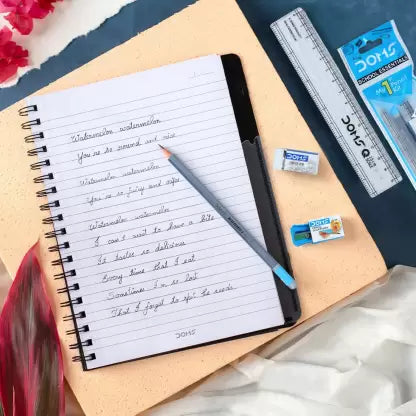 Watermelon watermelon
You're so round and nice
Watermelon watermelon
You're so juicy and
Watermelon watermelon
I can't wait to have a bite
It tastes so delicious
Every time that I eat
Sometimes I'm so lost
That I forget to spit the seeds
DOMS
DOMS
DOMS
DOMS
DOMS
SCHOOL ESSENTIALS
My 1st Pencil Kit